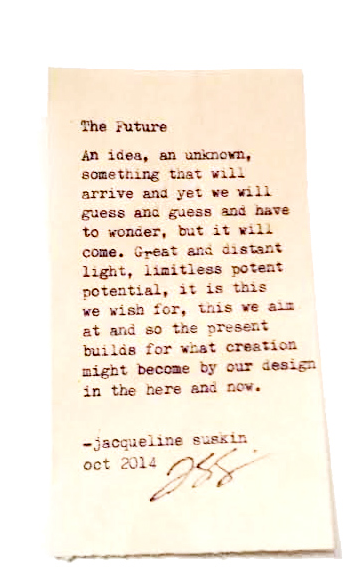 The Future
An idea, an unknown,
something that will
arrive and yet we will
guess and guess and have
to wonder, but it will
come. Great and distant
light, limitless potent
potential, it is this
we wish for, this we aim
at and so the present
builds for what creation
might become by our design
in the here and now.
-jacqueline suskin
oct 2014